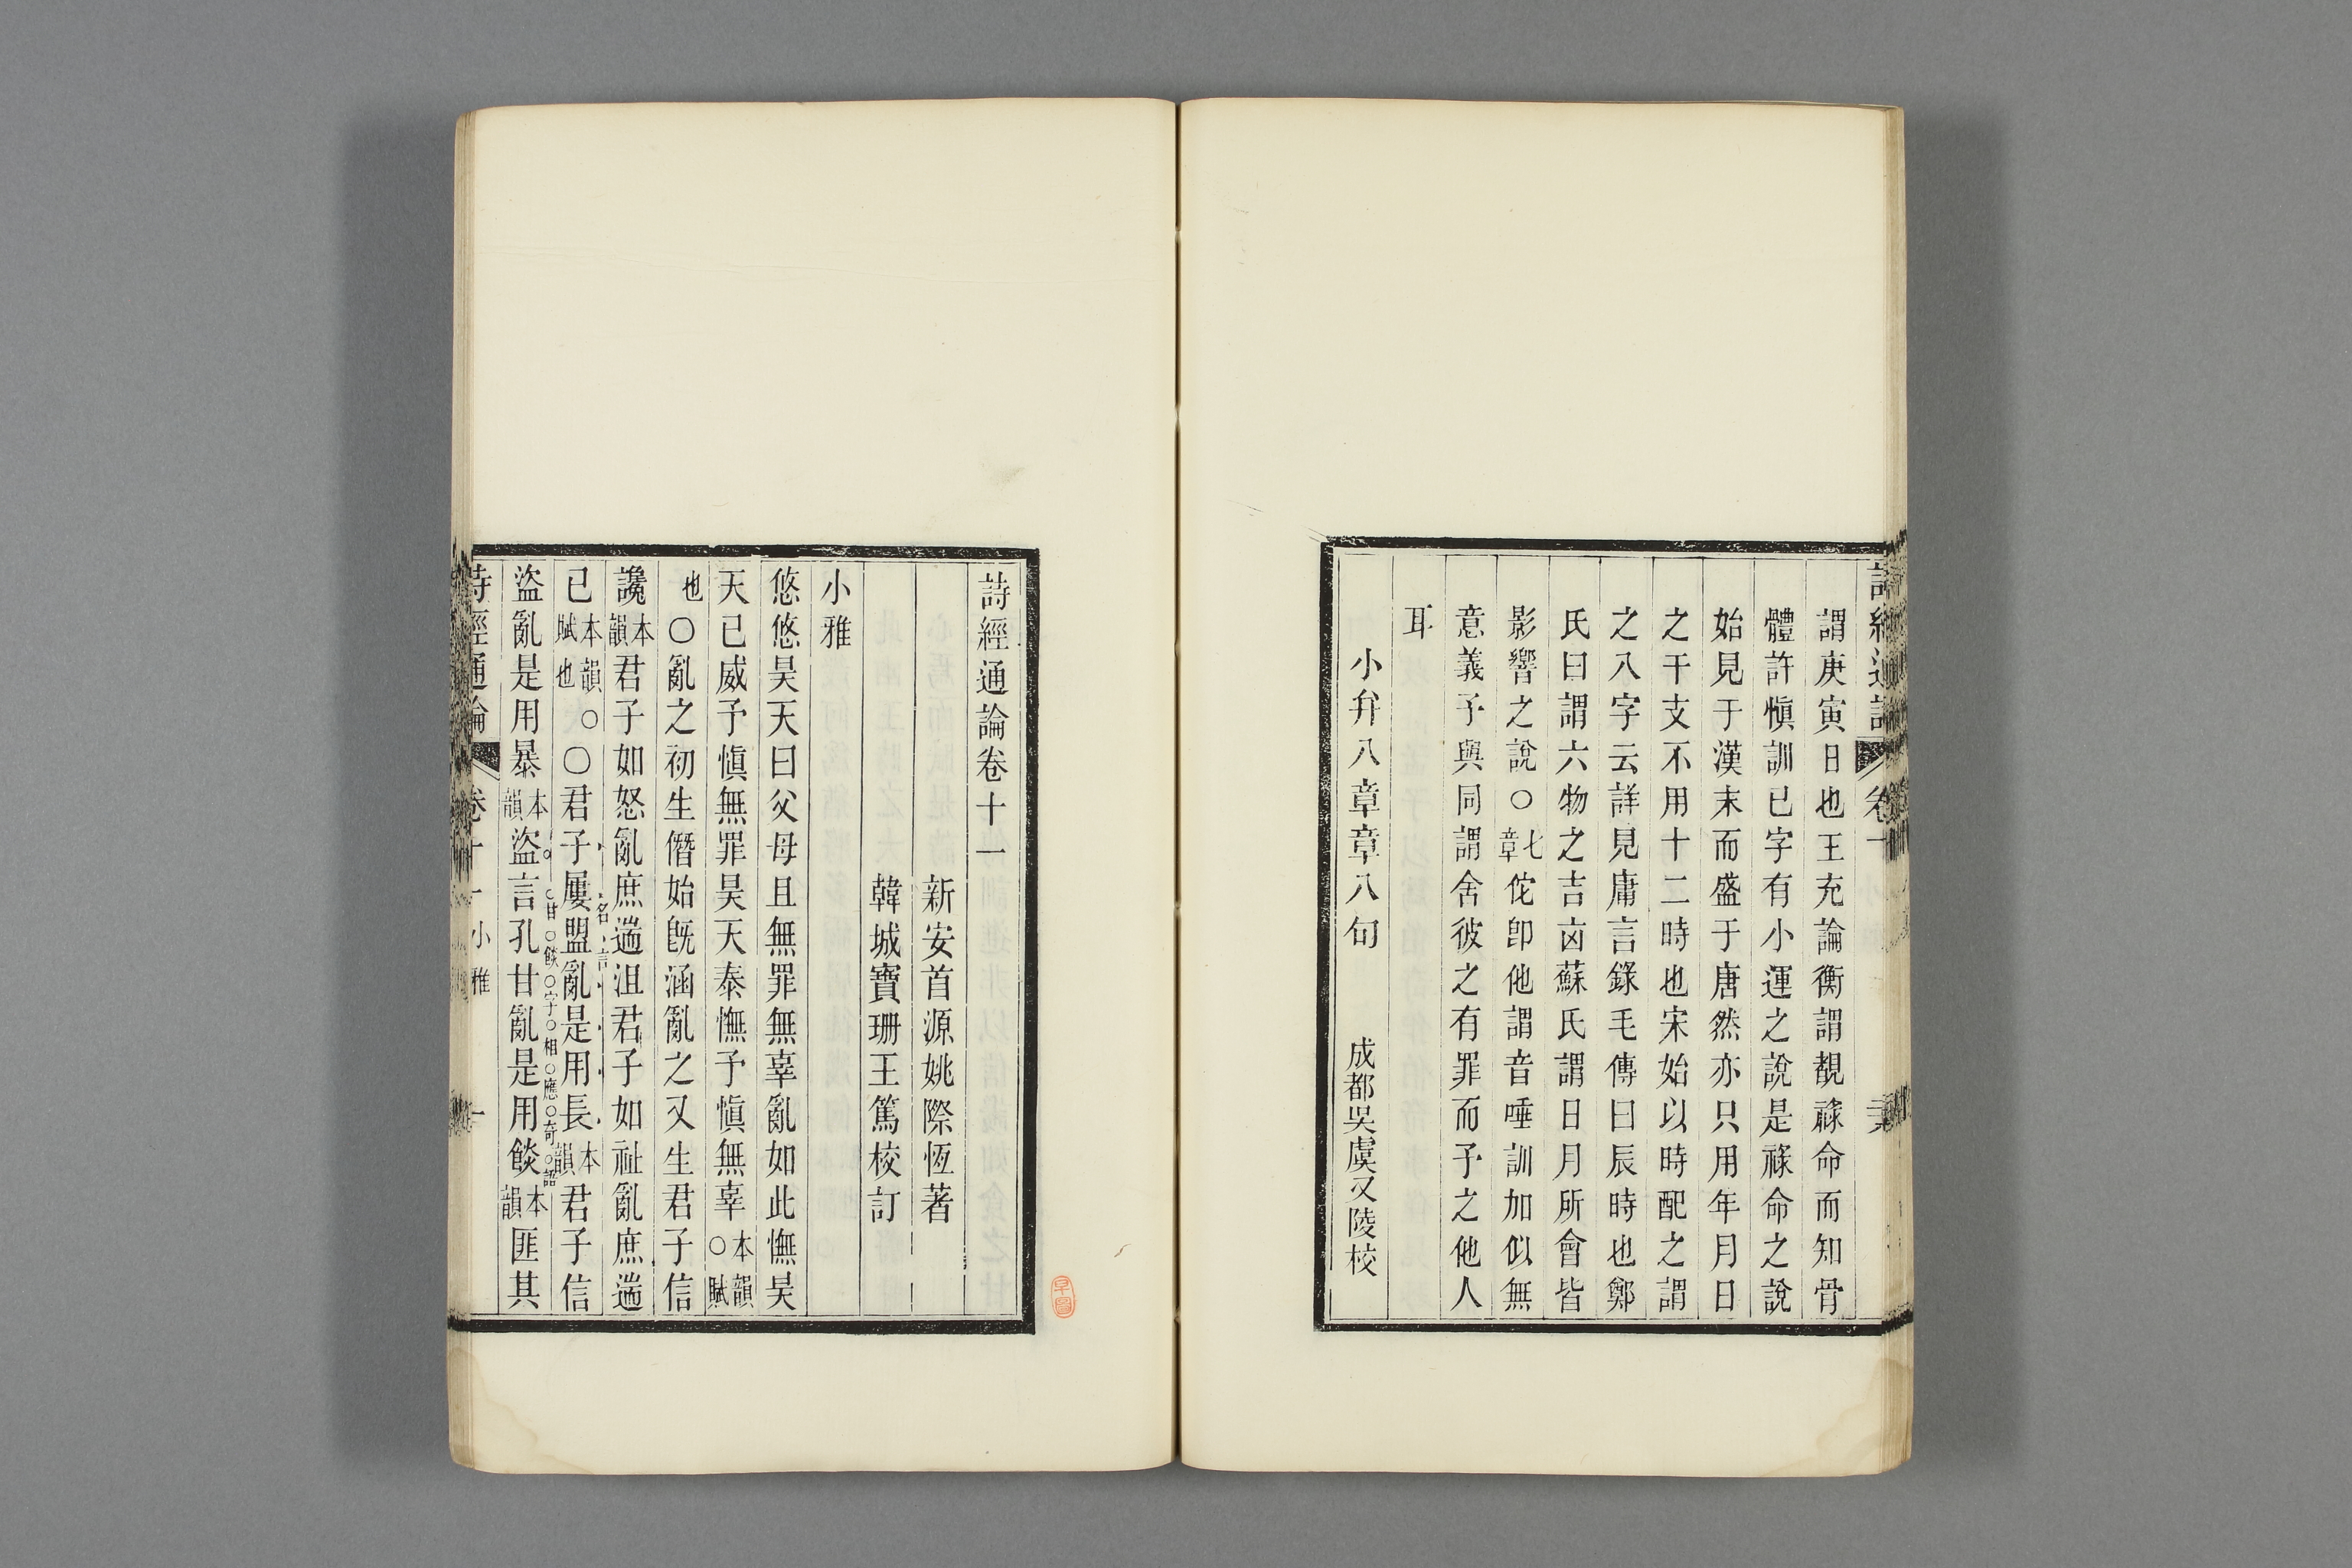 謂庚寅日也王充論衡謂覩祿命而知骨
體許愼訓已字有小運之說是祿命之說
始見于漢末而盛于唐然亦只用年月日
之干支不用十二時也宋始以時配之謂
之八字云詳見庸言錄毛傳曰辰時也鄭
氏曰謂六物之吉凶蘇氏謂日月所會皆
影響之說○七章佗卽他謂音唾訓加似無
意義予與同謂舍彼之有罪而予之他人
耳
小弁八章章八句 成都吳虞又陵校
詩經通論卷十一
新安首源姚際恆著
韓城寶珊王篤校訂
小雅
悠悠昊天曰父母且無罪無辜亂如此憮昊
天已威予愼無罪昊天泰憮予愼無辜本韻○賦
也○亂之初生僭始旣涵亂之又生君子信
讒本韻君子如怒亂庶遄沮君子如祉亂庶遄
已本韻○賦也○君子屢盟亂是用長本韻君子信
名言
盜亂是用暴本韻盜言孔甘亂是用餤本韻匪其
甘餤字相應奇語
詩經通論 卷十一 小雅 一